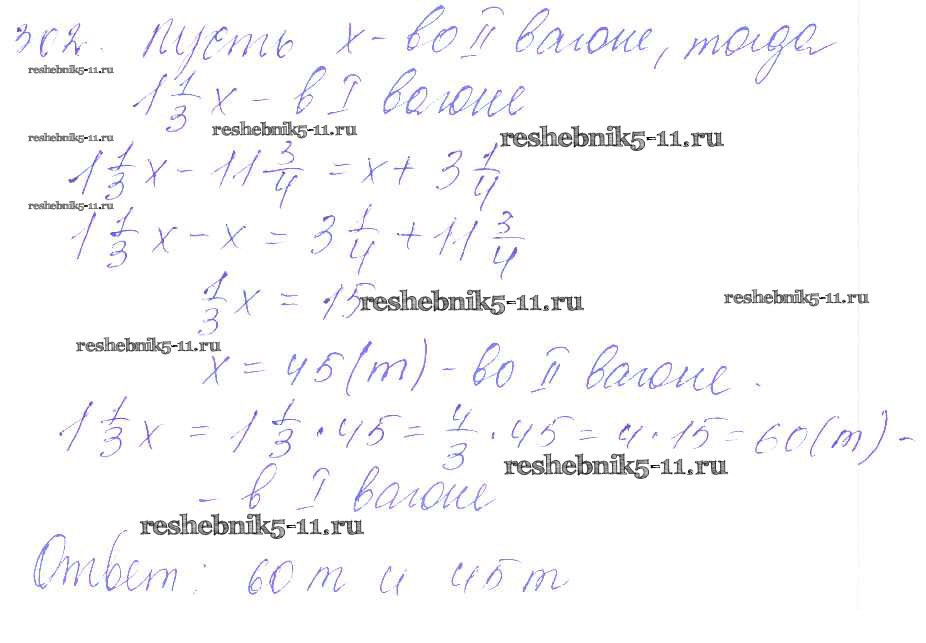 302. Пусть x - во II вагоне, тогда
reshebnik5-11.ru
1 1/3 x - в I вагоне
reshebnik5-11.ru reshebnik5-11.ru reshebnik5-11.ru
1 1/3 x - 11 3/4 = x + 3 1/4
reshebnik5-11.ru
1 1/3 x - x = 3 1/4 + 11 3/4
1/3 x = 15 reshebnik5-11.ru reshebnik5-11.ru
reshebnik5-11.ru
x = 45 (т) - во II вагоне.
1 1/3 x = 1 1/3 · 45 = 4/3 · 45 = 4 · 15 = 60 (т) -
reshebnik5-11.ru
- в I вагоне
reshebnik5-11.ru
Ответ: 60 т и 45 т